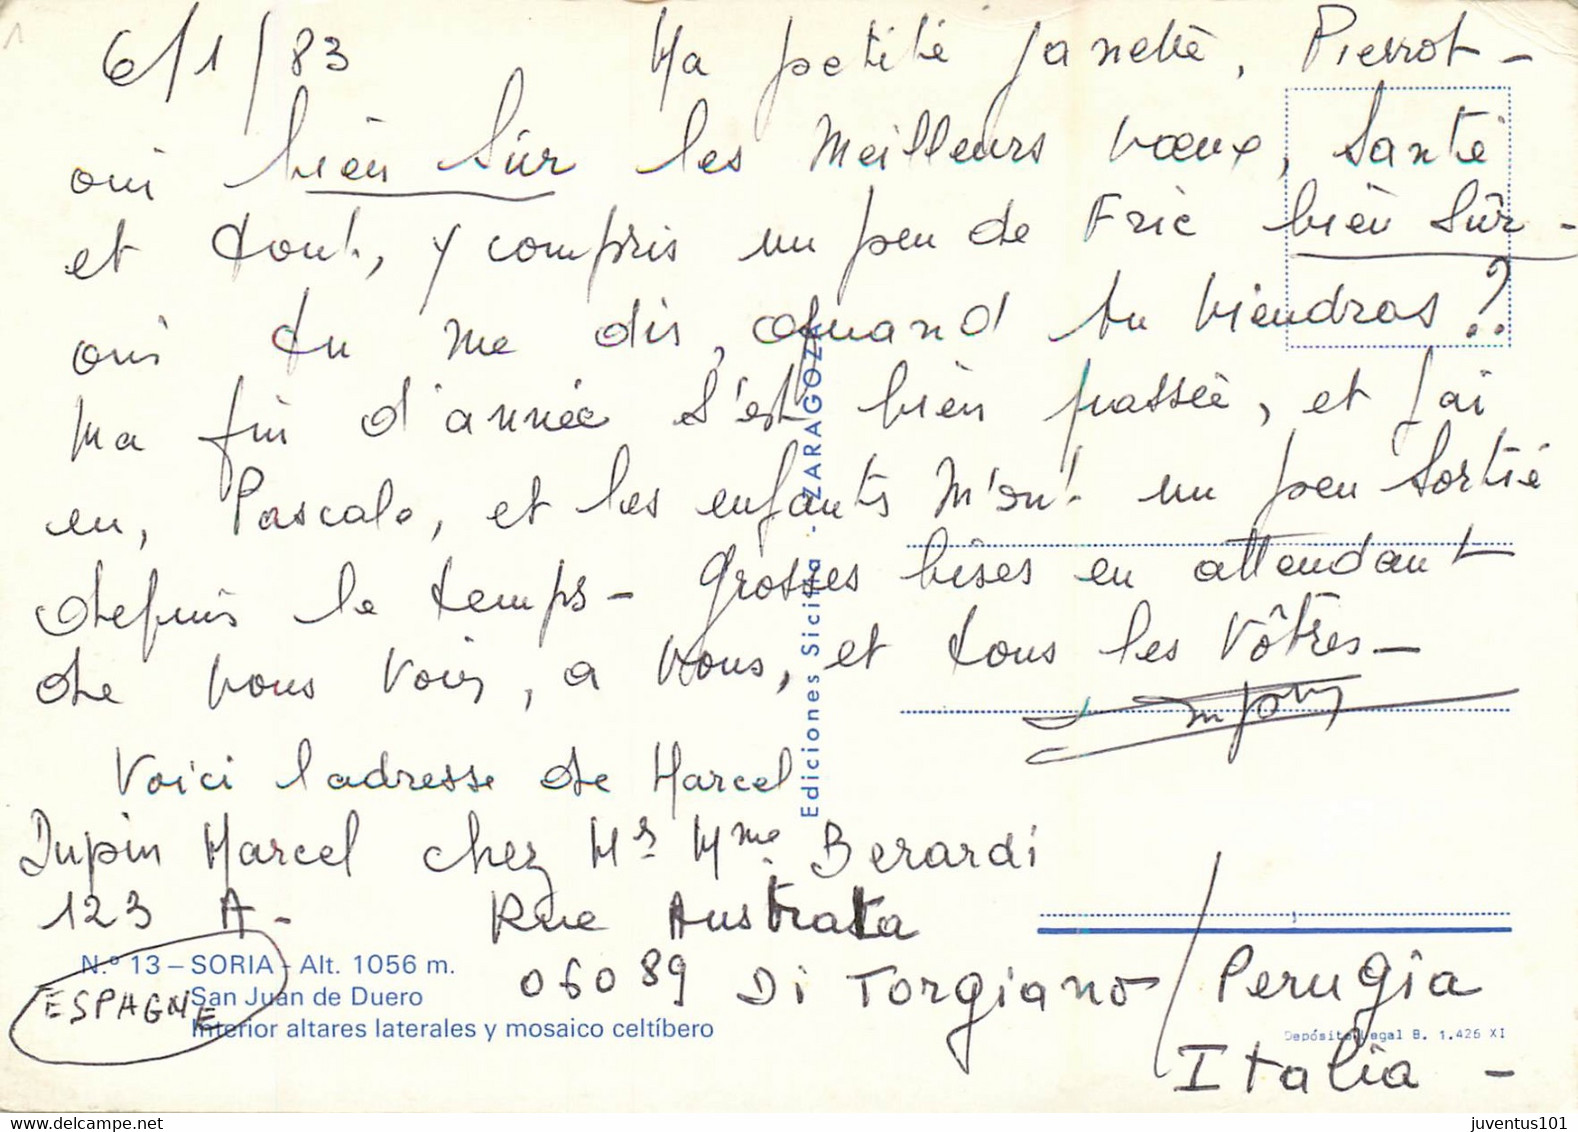 6/1/83 Ma petite Janette, Pierrot -
oui bien sûr les meilleurs vœux, santé
et tout, y compris un peu de Fric bien sûr -
oui tu me dis, quand tu viendras ?!
Ma fin d'année s'est bien passée, et j'ai
eu, Pascale, et les enfants m'ont un peu sortie
depuis le temps - grosses bises en attendant
de vous voir, a vous, et tous les vôtres -
Voici l'adresse de Marcel
Dupin Marcel chez Mr Mme Berardi
123 A - Rue Austrata
06089 Di Torgiano / Perugia
Italia -
ESPAGNE
N.º 13 – SORIA - Alt. 1056 m.
San Juan de Duero
Interior altares laterales y mosaico celtíbero
Ediciones Sicilia - ZARAGOZA
Depósito Legal B. 1.426 XI
www.delcampe.net
juventus101